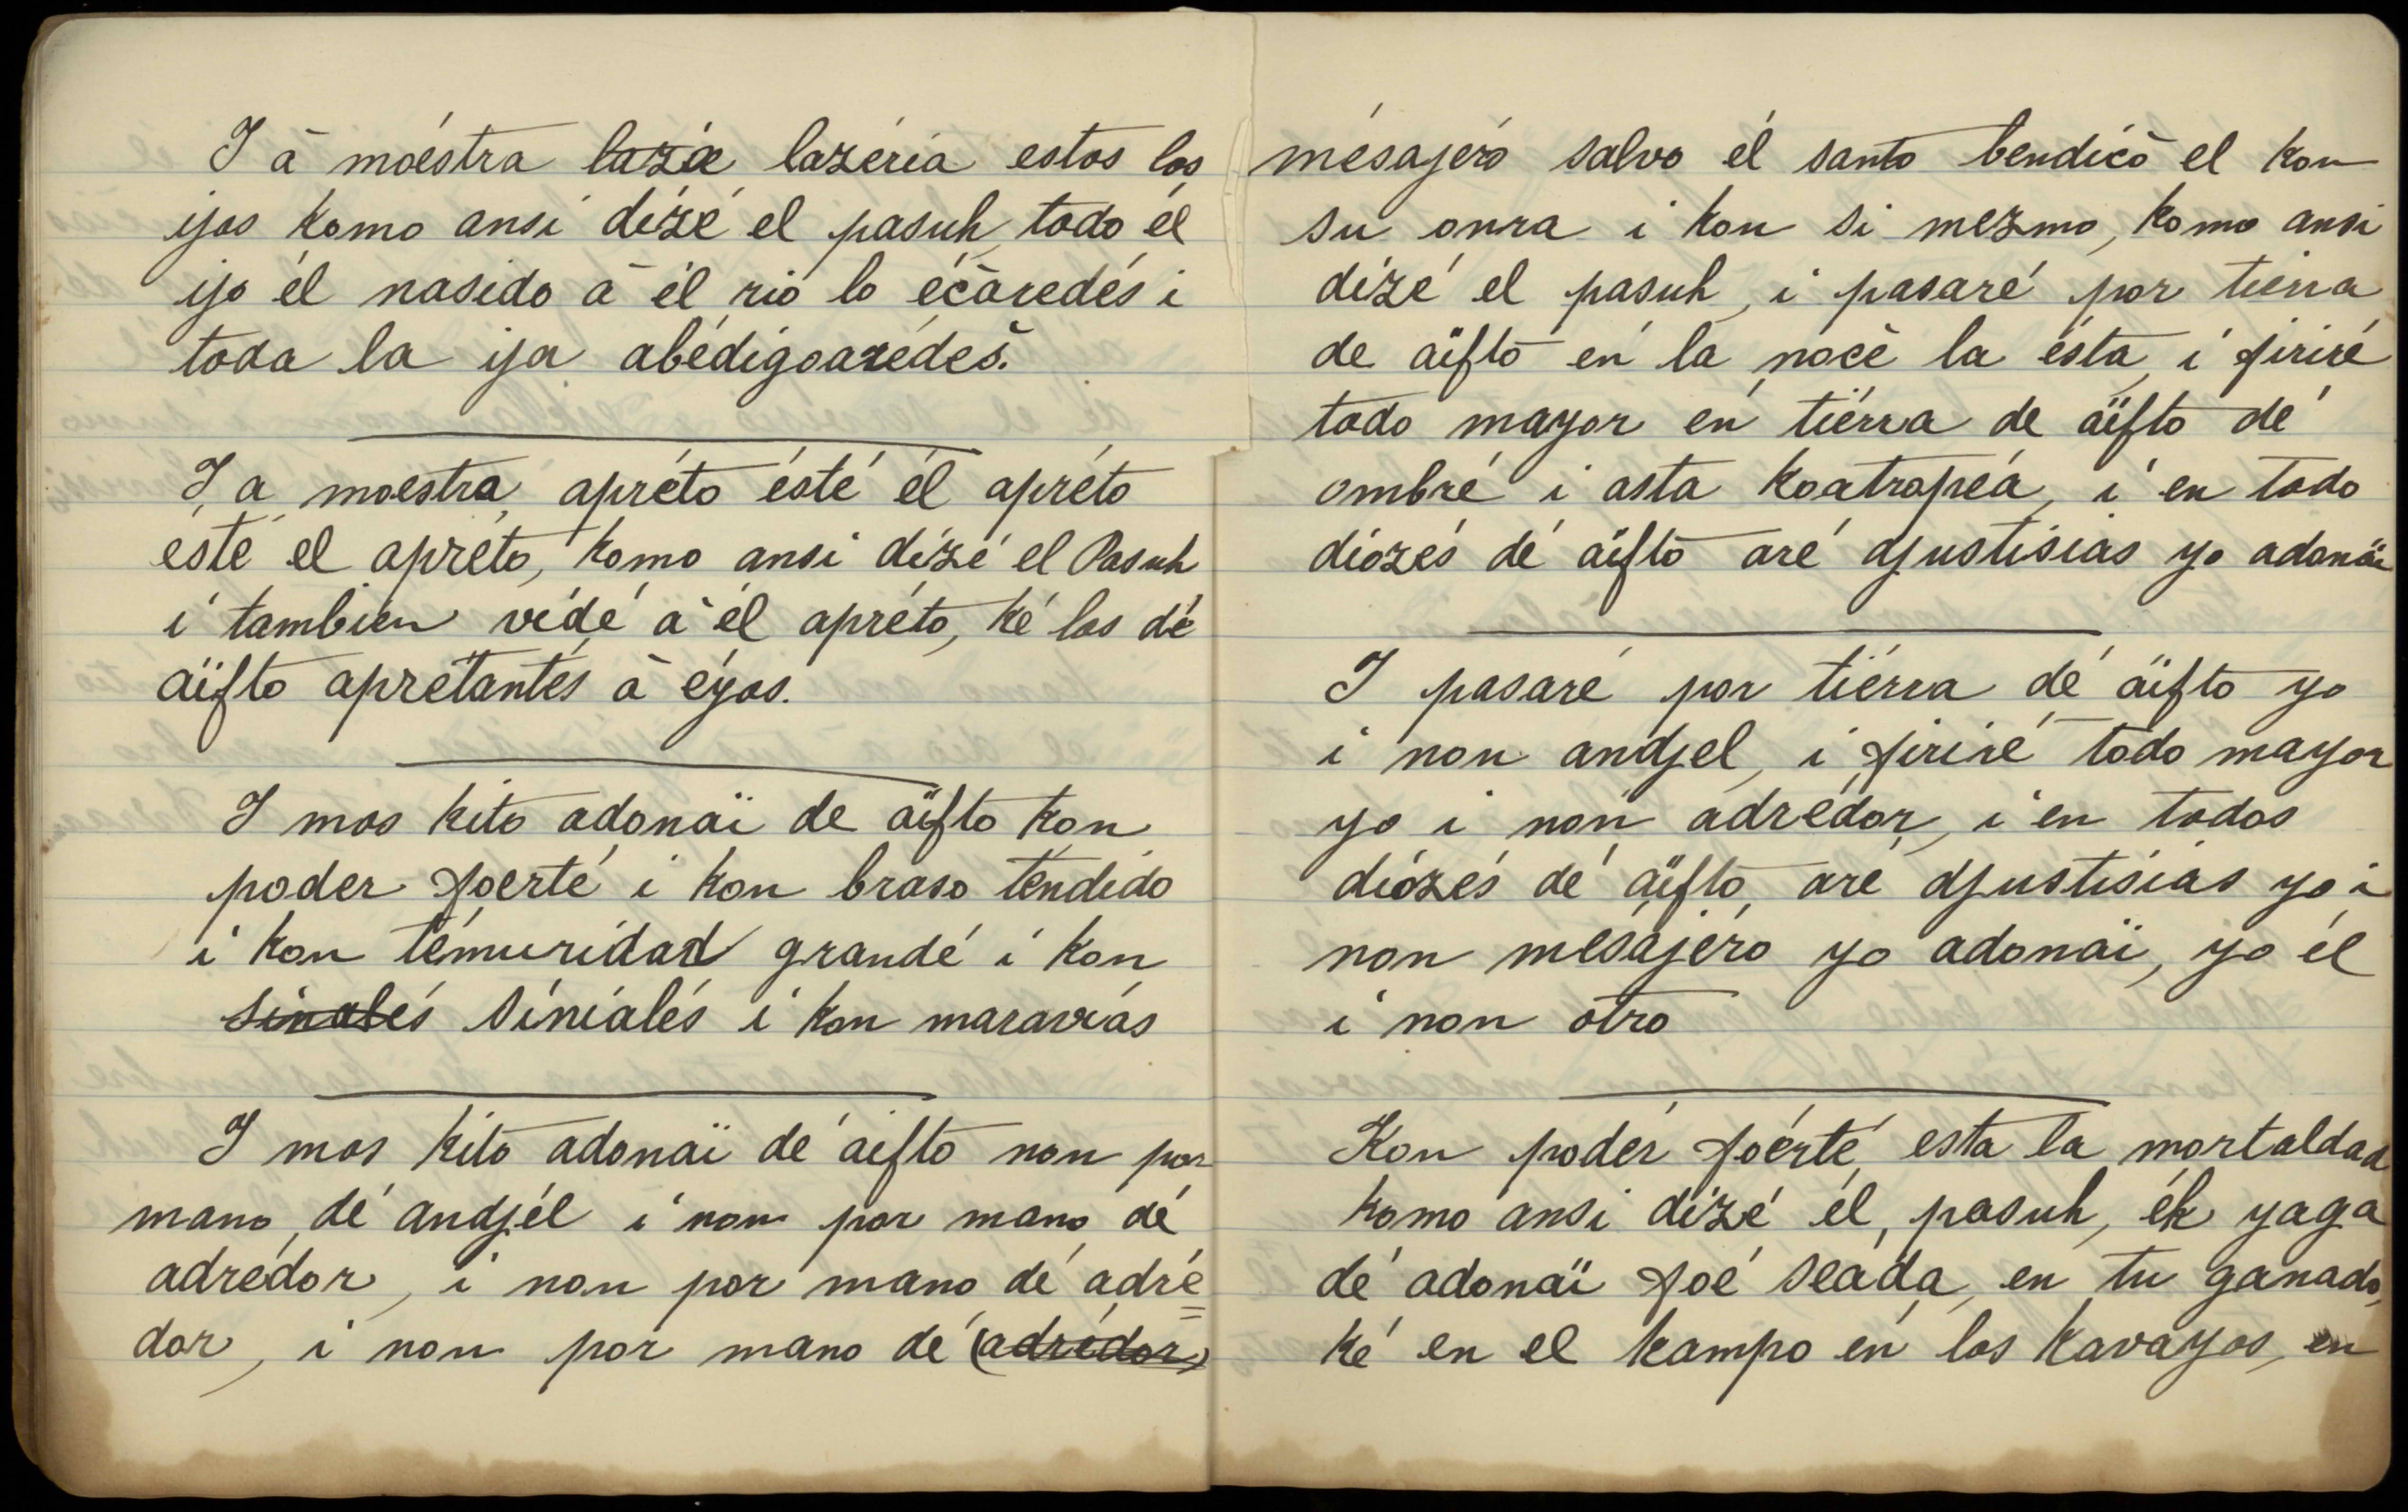 I ā moéstra lazé lazéria estos los
ijos komo ansi dízé el pasuh, todo él
ijo él nasido ā él rio lo éc̄arédés i
toda la ija abédigoarédés̄.
I a moestra apréto ésté él apréto
ésté el apréto, komo ansi dízé el Pasuh
i tambien védé ā él apréto, ké los dé
aïfto aprétantés ā éyos.
I mos kito adonaï de aïfto kon
poder foerté i kon braso téndido
i kon témuridad grandé i kon
sinalés siniálés i kon maravias
I mos kito adonaï dé aifto non por
mano dé andjél i non por mano dé
adrédor, i non por mano dé adré=
dor, i non por mano dé (adrédor)
mésajéro salvo él santo bendic̄o el kon
su onra i kon si mezmo, komo ansi
dízé el pasuh, i pasaré por tierra
de aïfto én la noc̄é la ésta, i firiré
todo mayor én tiérra de aïfto dé
ombré i asta koatropéa, i en todo
diozés dé aïfto aré djustisias yo adonaï
I pasaré por tiérra dé aïfto yo
i non andjel, i firiré todo mayor
yo i non adrédor, i en todos
diózés dé aïfto, aré djustisias yo i
non mésajéro yo adonaï, yo él
i non otro
Kon podér foérté, esta la mortaldad
komo ansi dízé él, pasuh, ék yaga
dé adonaï foé séada, en tu ganado,
ké en el kampo én los kavayos, en